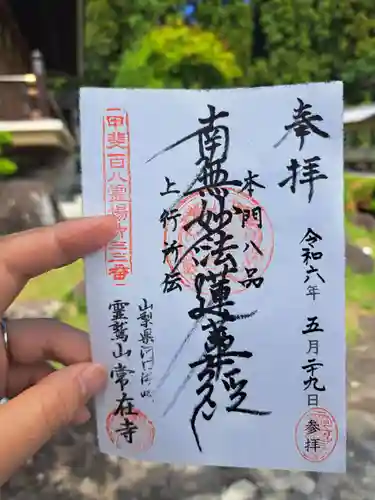 奉拝
令和六年 五月二十九日
参拝
本門八品
南無妙法蓮華経
上行所伝
甲斐百八霊場三三番
山梨県河口湖
霊鷲山 常在寺